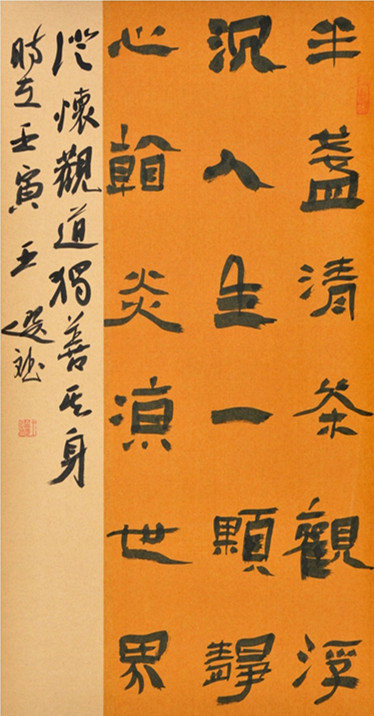 半盞清茶觀浮
沉人生一顆靜
心炎涼世界
澄懷觀道獨善其身
時在壬寅王